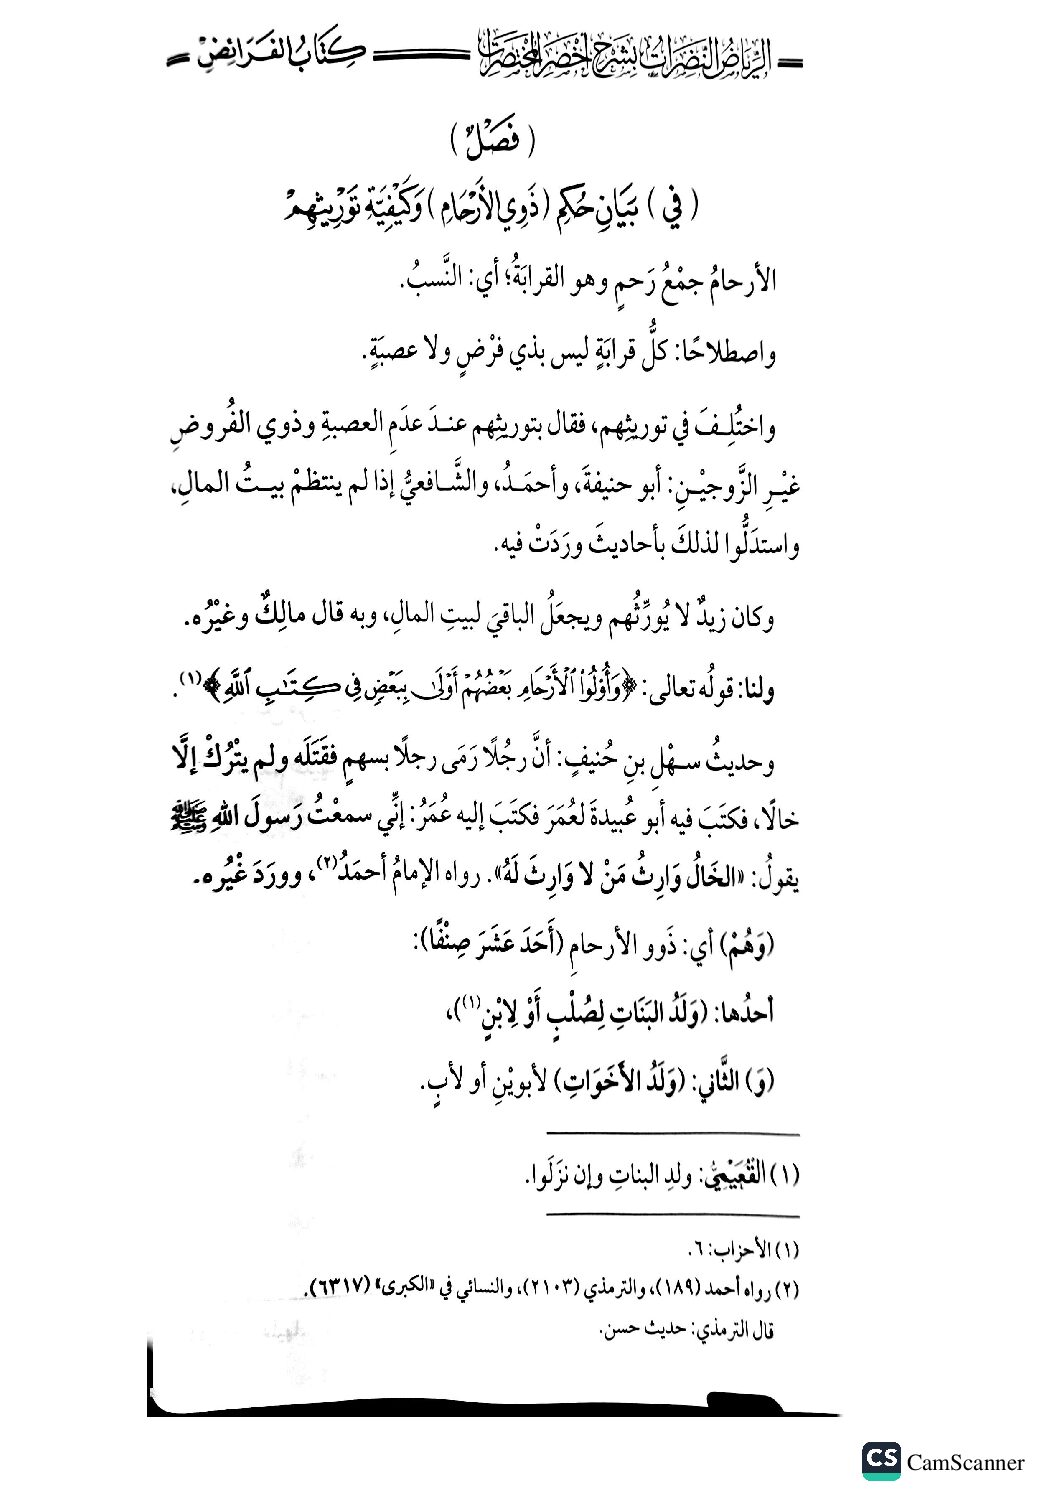 الرِّيَاضُ النَّضِرَاتُ بِشَرْحِ أَخْصَرِ المُخْتَصَرَاتِ كِتَابُ الفَرَائِضِ
(فَصْلٌ)
(فِي) بَيَانِ حُكْمِ (ذَوِي الأَرْحَامِ) وَكَيْفِيَّةِ تَوْرِيثِهِمْ
الأرحامُ جمْعُ رَحمٍ وهو القرابَةُ؛ أي: النَّسبُ.
واصطلاحًا: كلُّ قرابَةٍ ليس بذي فرْضٍ ولا عصبَةٍ.
واختُلِفَ في توريثِهم، فقال بتوريثِهم عندَ عدَمِ العصبةِ وذوي الفُروضِ
غيْرِ الزَّوجيْنِ: أبو حنيفةَ، وأحمَدُ، والشَّافعيُّ إذا لم ينتظمْ بيتُ المالِ،
واستدَلُّوا لذلكَ بأحاديثَ ورَدَتْ فيه.
وكان زيدٌ لا يُورِّثُهم ويجعَلُ الباقيَ لبيتِ المالِ، وبه قال مالِكٌ وغيْرُه.
ولنا: قولُه تعالى: ﴿وَأُوْلُواْ ٱلۡأَرۡحَامِ بَعۡضُهُمۡ أَوۡلَىٰ بِبَعۡضٖ فِي كِتَٰبِ ٱللَّهِ﴾(١).
وحديثُ سهْلِ بنِ حُنيفٍ: أنَّ رجُلًا رَمَى رجلًا بسهمٍ فقَتَلَه ولم يتْرُكْ إلَّا
خالًا، فكتَبَ فيه أبو عُبيدةَ لعُمَرَ فكتَبَ إليه عُمَرُ: إنِّي سمعْتُ رَسولَ اللهِ ﷺ
يقولُ: «الخَالُ وَارِثُ مَنْ لا وَارِثَ لَهُ». رواه الإمامُ أحمَدُ(٢)، وورَدَ غيْرُه.
(وَهُمْ) أي: ذَوو الأرحامِ (أَحَدَ عَشَرَ صِنْفًا):
أحدُها: (وَلَدُ البَنَاتِ لِصُلْبٍ أَوْ لِابْنٍ(١))،
(وَ) الثَّاني: (وَلَدُ الأَخَوَاتِ) لأبويْنِ أو لأبٍ.
(١) القُعَيْمِيُّ: ولدِ البناتِ وإن نزَلَوا.
(١) الأحزاب: ٦.
(٢) رواه أحمد (١٨٩)، والترمذي (٢١٠٣)، والنسائي في «الكبرى» (٦٣١٧).
قال الترمذي: حديث حسن.
CS CamScanner